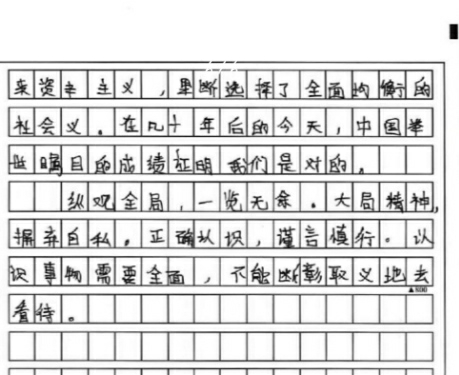 来资丰主义，果断选择了全面均衡的
社会义。在几十年后的今天，中国举
世瞩目的成绩证明我们是对的。
纵观全局，一览无余。大局精神，
摒弃自私。正确认识，谨言慎行。认
识事物需要全面，不能断彰取义地去
看待。
▲800